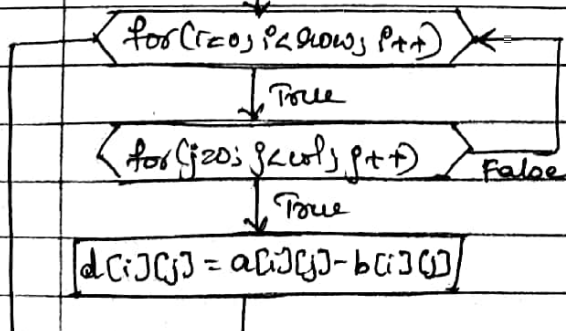 for(i=0; i<row; i++)
True
for(j=0; j<col; j++)
False
True
d[i][j] = a[i][j]-b[i][j]